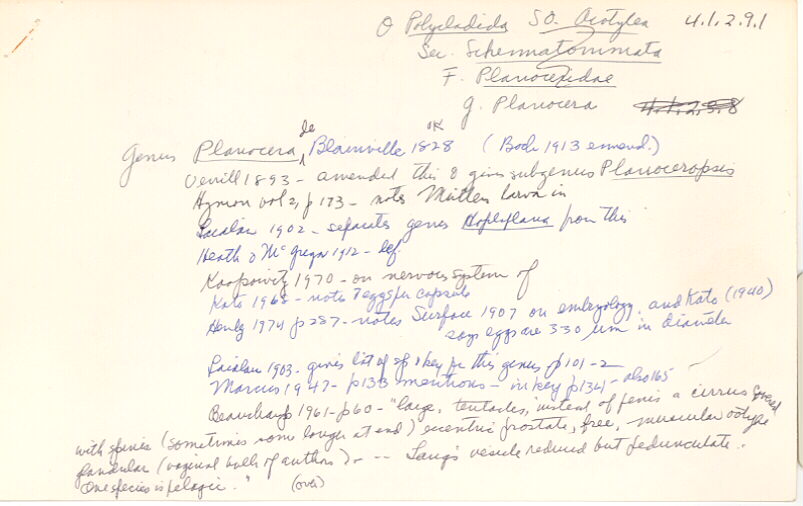 O Polycladida SO. Acotylea 4.1.2.9.1
Sec. Schematommata
F. Planoceridae
g. Planocera 4.1.2.9.8
Genus Planocera de Blainville 1828 OK (Bock 1913 emend.)
Verrill 1893 - amended this & gives subgenus Planoceropsis
Hyman vol 2, p 173 - notes Müllers larva in
Laidlaw 1902 - separates genus Hoploplana from this
Heath & McGregor 1912 - def.
Koopowitz 1970 - on nervous system of
Kato 1968 - notes 7 eggs per capsule
Henly 1974 p 287 - notes Surface 1907 on embryology, and Kato (1940)
says eggs are 330 µm in diameter
Laidlaw 1903. gives list of sp & key for this genus p 101-2
Marcus 1947 - p 133 mentions - in key p 134) - also 165
Beauchamp 1961 - p 60 - "large, tentacles, instead of penis a cirrus
with spines (sometimes some longer at end) eccentric prostate, free, muscular ootype
glandular (vaginal bulb of authors). -- Lang's vesicle reduced but pedunculate.
One species is pelagic." (over)